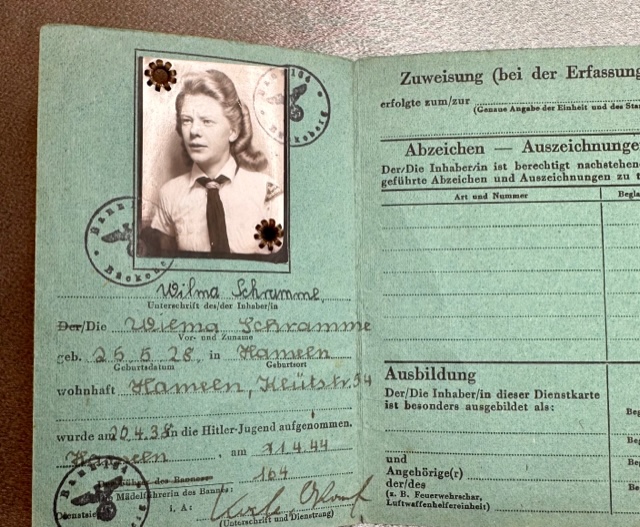 BANN 164
Bückeberg
BANN
Bückebe
Wilma Schramme,
Unterschrift des/der Inhaber/in
Der/Die Wilma Schramme
Vor- und Zuname
geb. 25 5 28, in Hameln
Geburtsdatum Geburtsort
wohnhaft Hameln, Klütstr. 54
wurde am 20.4.38 in die Hitler-Jugend aufgenommen.
Hameln, am 21.4.44
Der Führer des Bannes 164
Mädelführerin des Bannes:
Dienstsie i. A:
(Unterschrift und Dienstrang)
BANN 164
Zuweisung (bei der Erfassung
erfolgte zum/zur
(Genaue Angabe der Einheit und des Sta
Abzeichen — Auszeichnunge
Der/Die Inhaber/in ist berechtigt nachstehend
geführte Abzeichen und Auszeichnungen zu t
Art und Nummer Begla
Ausbildung
Der/Die Inhaber/in dieser Dienstkarte
ist besonders ausgebildet als:
Beg
Beg
und Beg
Angehörige(r) Be
der/des Be
(z. B. Feuerwehrschar,
Luftwaffenhelfereinheit)